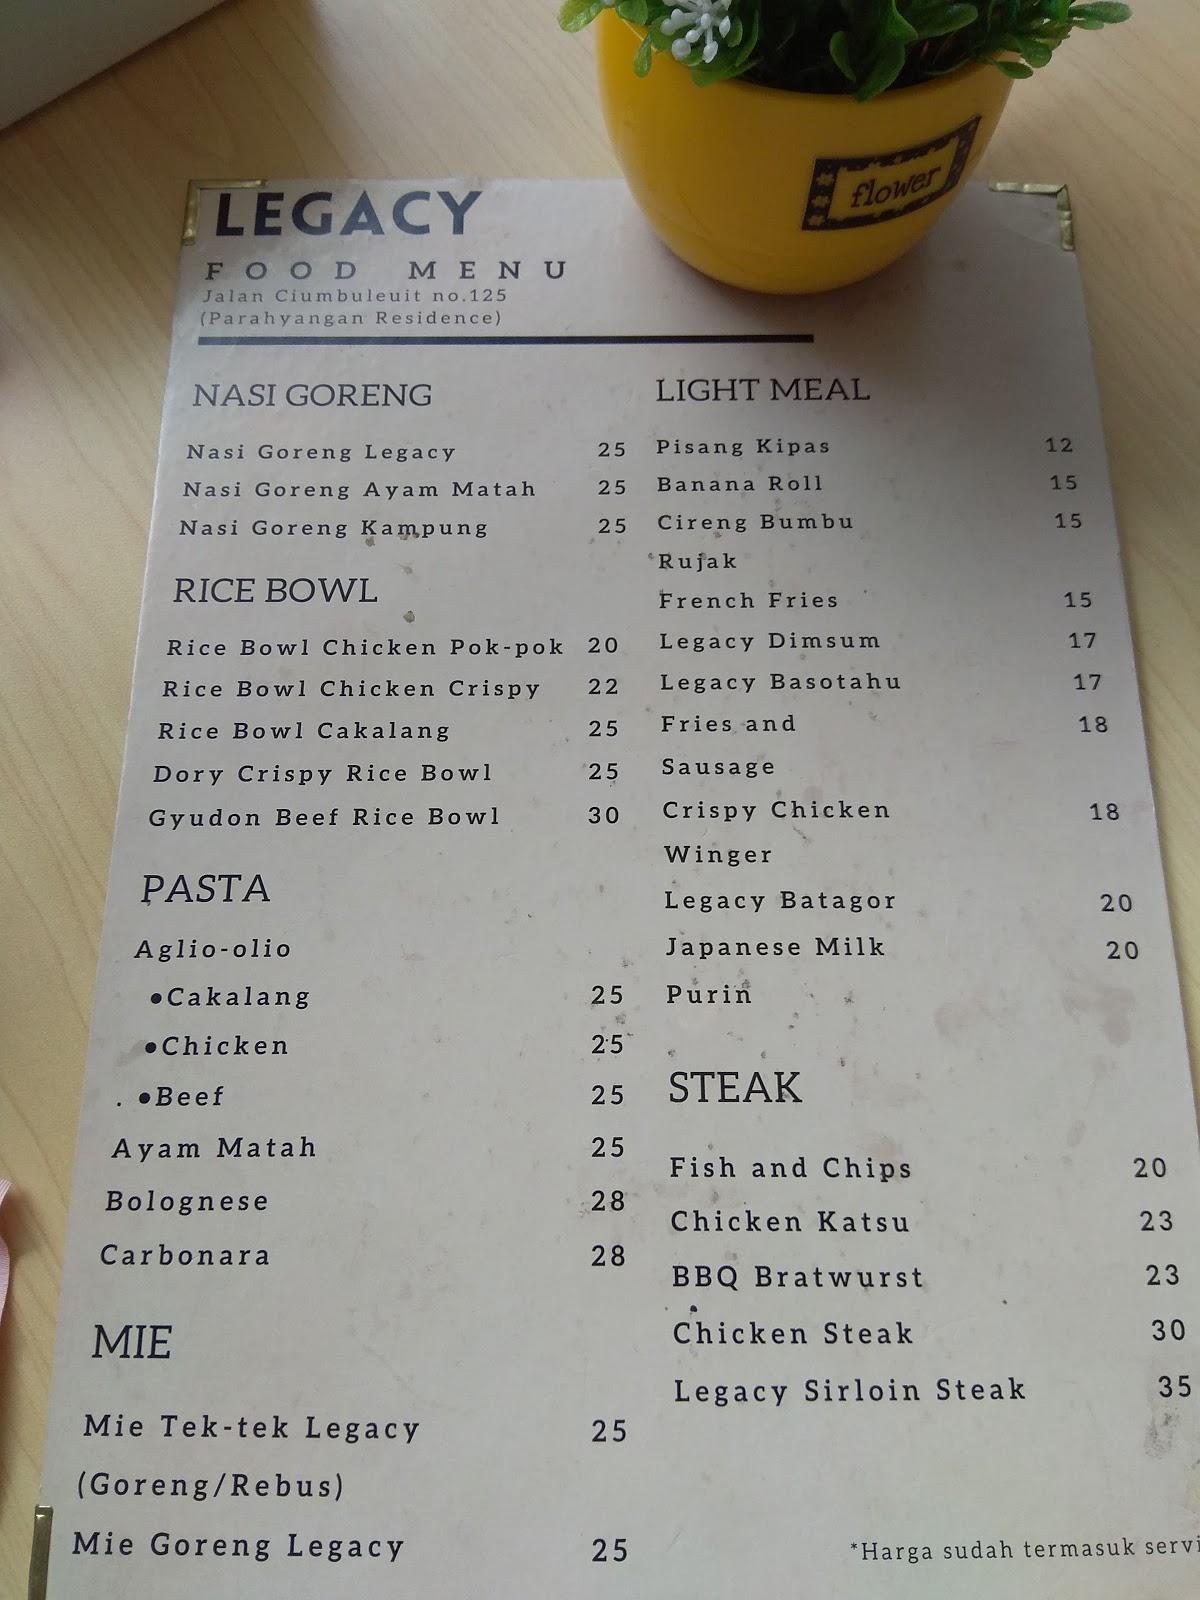 flower
LEGACY
FOOD MENU
Jalan Ciumbuleuit no.125
(Parahyangan Residence)
NASI GORENG
Nasi Goreng Legacy 25
Nasi Goreng Ayam Matah 25
Nasi Goreng Kampung 25
RICE BOWL
Rice Bowl Chicken Pok-pok 20
Rice Bowl Chicken Crispy 22
Rice Bowl Cakalang 25
Dory Crispy Rice Bowl 25
Gyudon Beef Rice Bowl 30
PASTA
Aglio-olio
•Cakalang 25
•Chicken 25
. •Beef 25
Ayam Matah 25
Bolognese 28
Carbonara 28
MIE
Mie Tek-tek Legacy 25
(Goreng/Rebus)
Mie Goreng Legacy 25
LIGHT MEAL
Pisang Kipas 12
Banana Roll 15
Cireng Bumbu 15
Rujak
French Fries 15
Legacy Dimsum 17
Legacy Basotahu 17
Fries and 18
Sausage
Crispy Chicken 18
Winger
Legacy Batagor 20
Japanese Milk 20
Purin
STEAK
Fish and Chips 20
Chicken Katsu 23
BBQ Bratwurst 23
Chicken Steak 30
Legacy Sirloin Steak 35
*Harga sudah termasuk servi